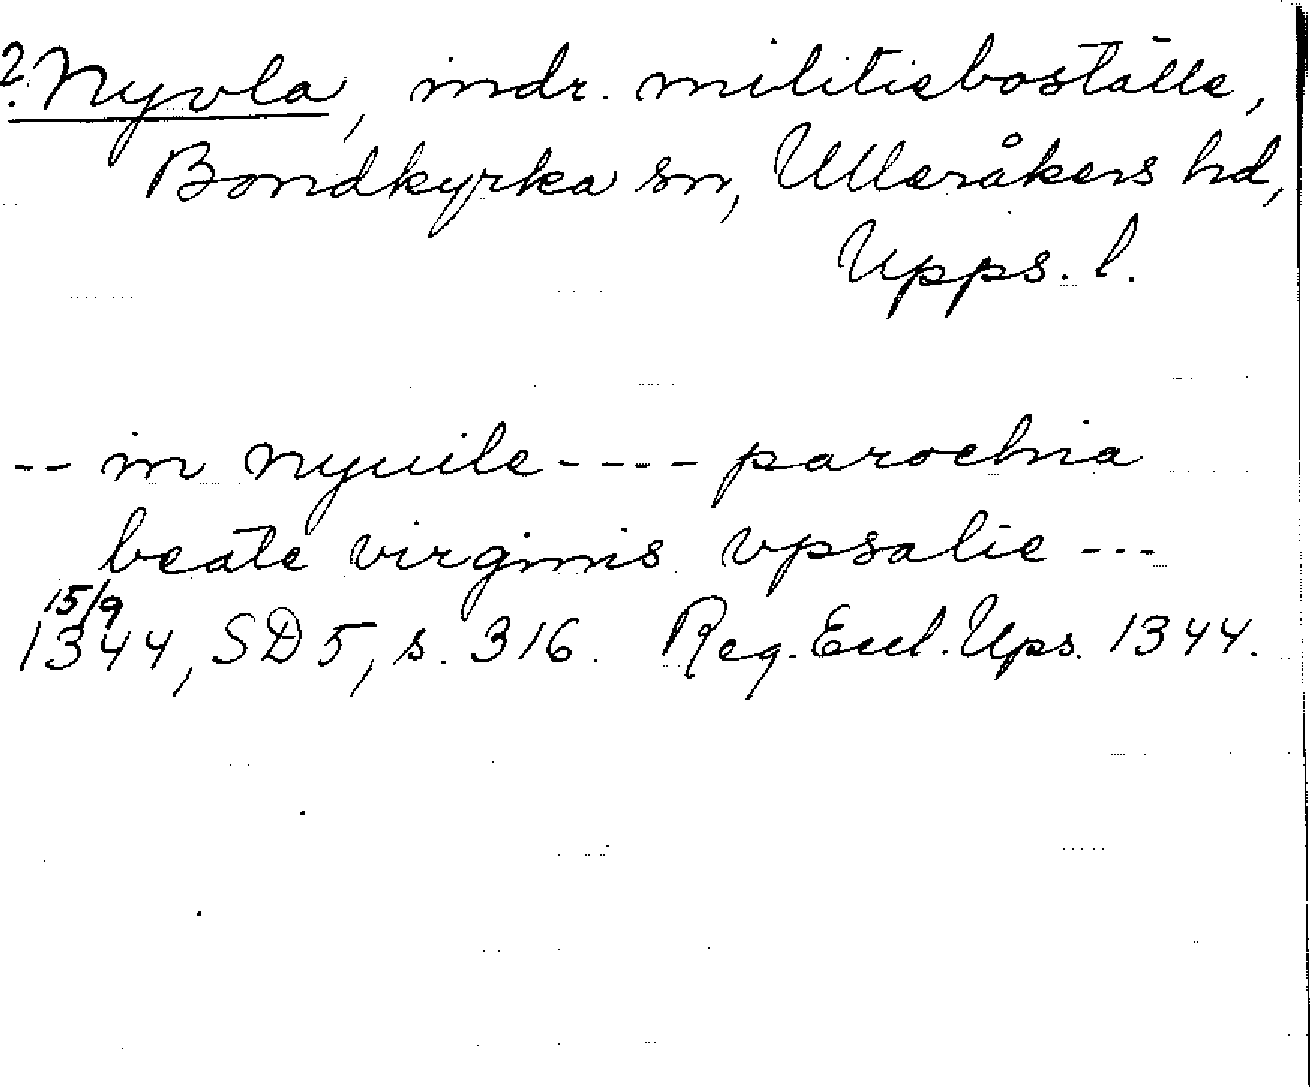 ? Nyvla, indr. militieboställe,
Bondkyrka sn, Ulleråkers hd,
Upps. l.
-- in nyuile ---- parochia
beate virginis vpsalie ---
15/9
1344, SD 5, s. 316. Reg. Eccl. Ups. 1344.